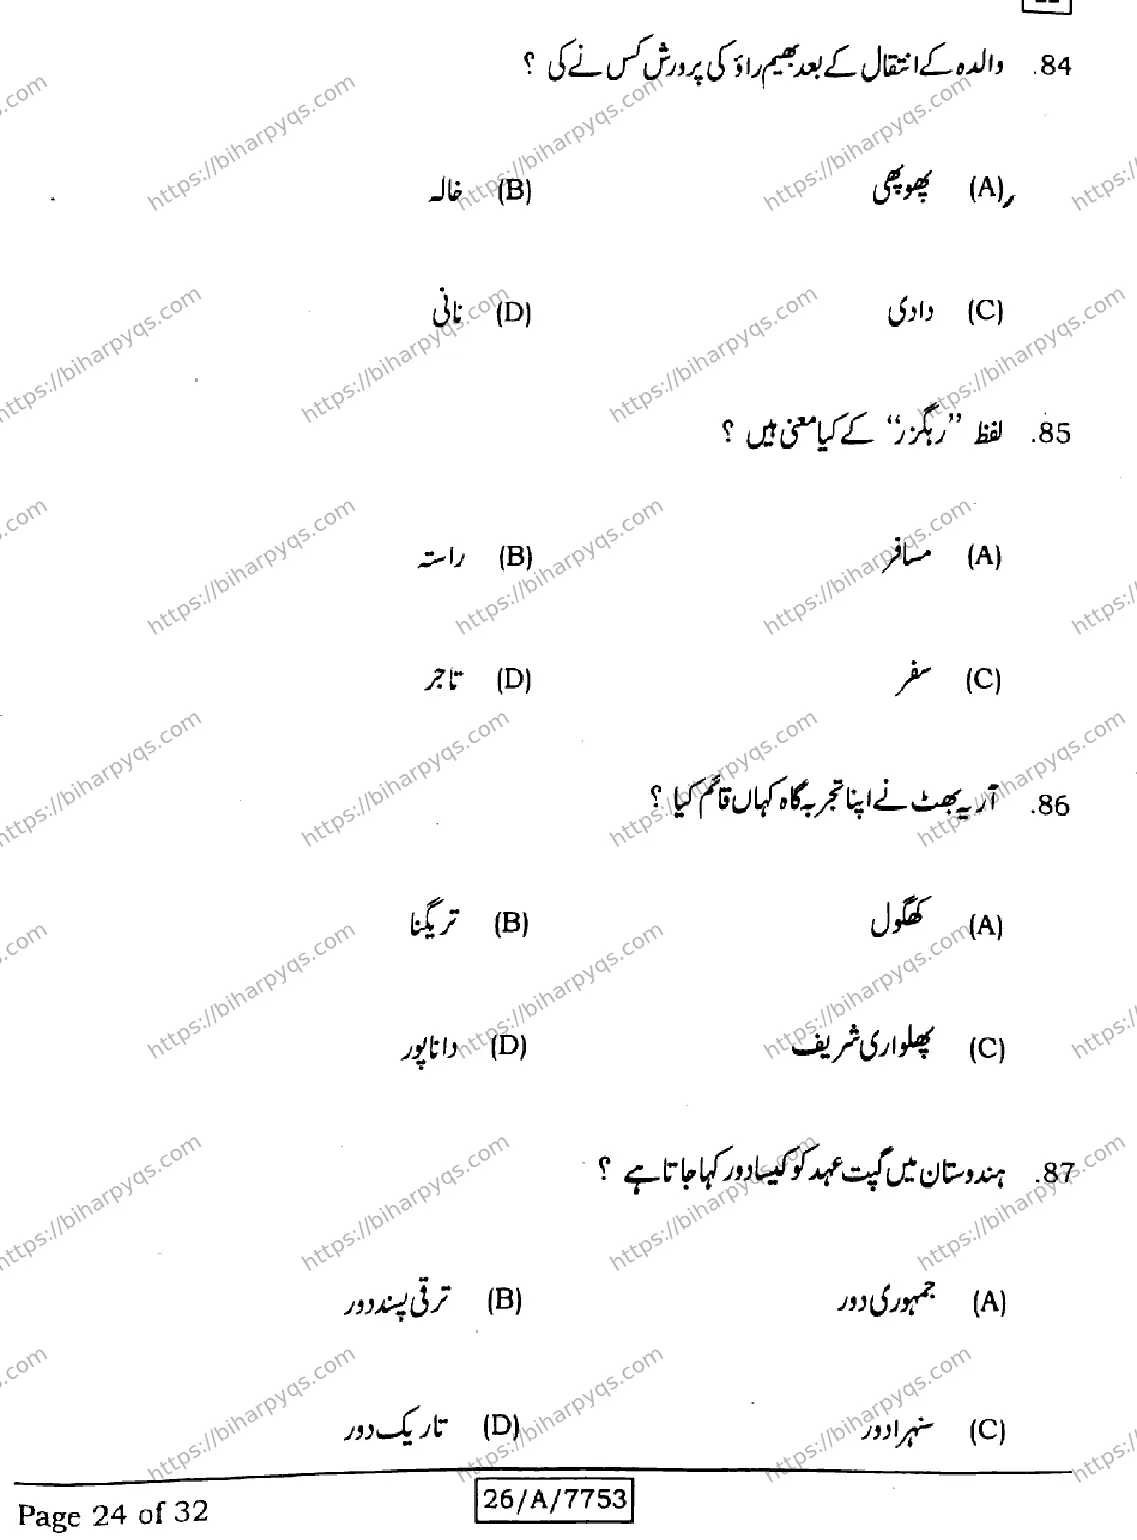 84. والدہ کے انتقال کے بعد بھیم راؤ کی پرورش کس نے کی ؟
(A) پھوپھی (B) خالہ
(C) دادی (D) نانی
85. لفظ ”رہگزر“ کے کیا معنی ہیں ؟
(A) مسافر (B) راستہ
(C) سفر (D) تاجر
86. آریہ بھٹ نے اپنا تجربہ گاہ کہاں قائم کیا ؟
(A) کھگول (B) تریگنا
(C) پھلواری شریف (D) داناپور
87. ہندوستان میں گپت عہد کو کیسا دور کہا جاتا ہے ؟
(A) جمہوری دور (B) ترقی پسند دور
(C) سنہرا دور (D) تاریک دور
Page 24 of 32 26/A/7753
https://biharpyqs.com